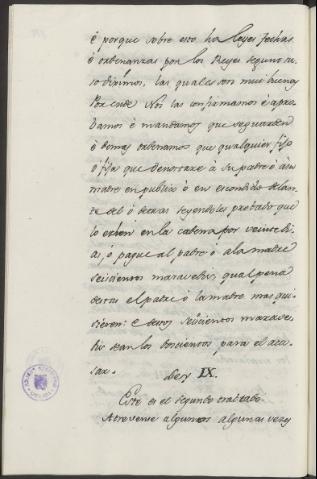 é porque sobre esto ha leyes fechas
é ordenanzas por los Reyes segund su-
so diximos, las quales son muy buenas
Por ende Nos las confirmamos é apro-
bamos é mandamos que se guarden
é demas ordenamos que qualquier fijo
ó fija que denostare á su padre ó á su
madre en publico ó en escondido delan-
te del ó detras seyendoles probado que
lo echen en la cadena por veinte di-
as, ó pague al padre ó á la madre
seiscientos maravedis, qual pena
destas el padre ó la madre mas qui-
sieren: é destos seiscientos marave-
dis sean los doscientos para el acu-
sar.
Ley IX.
Este es el segundo trabtado
Atrevense algunos algunas veces